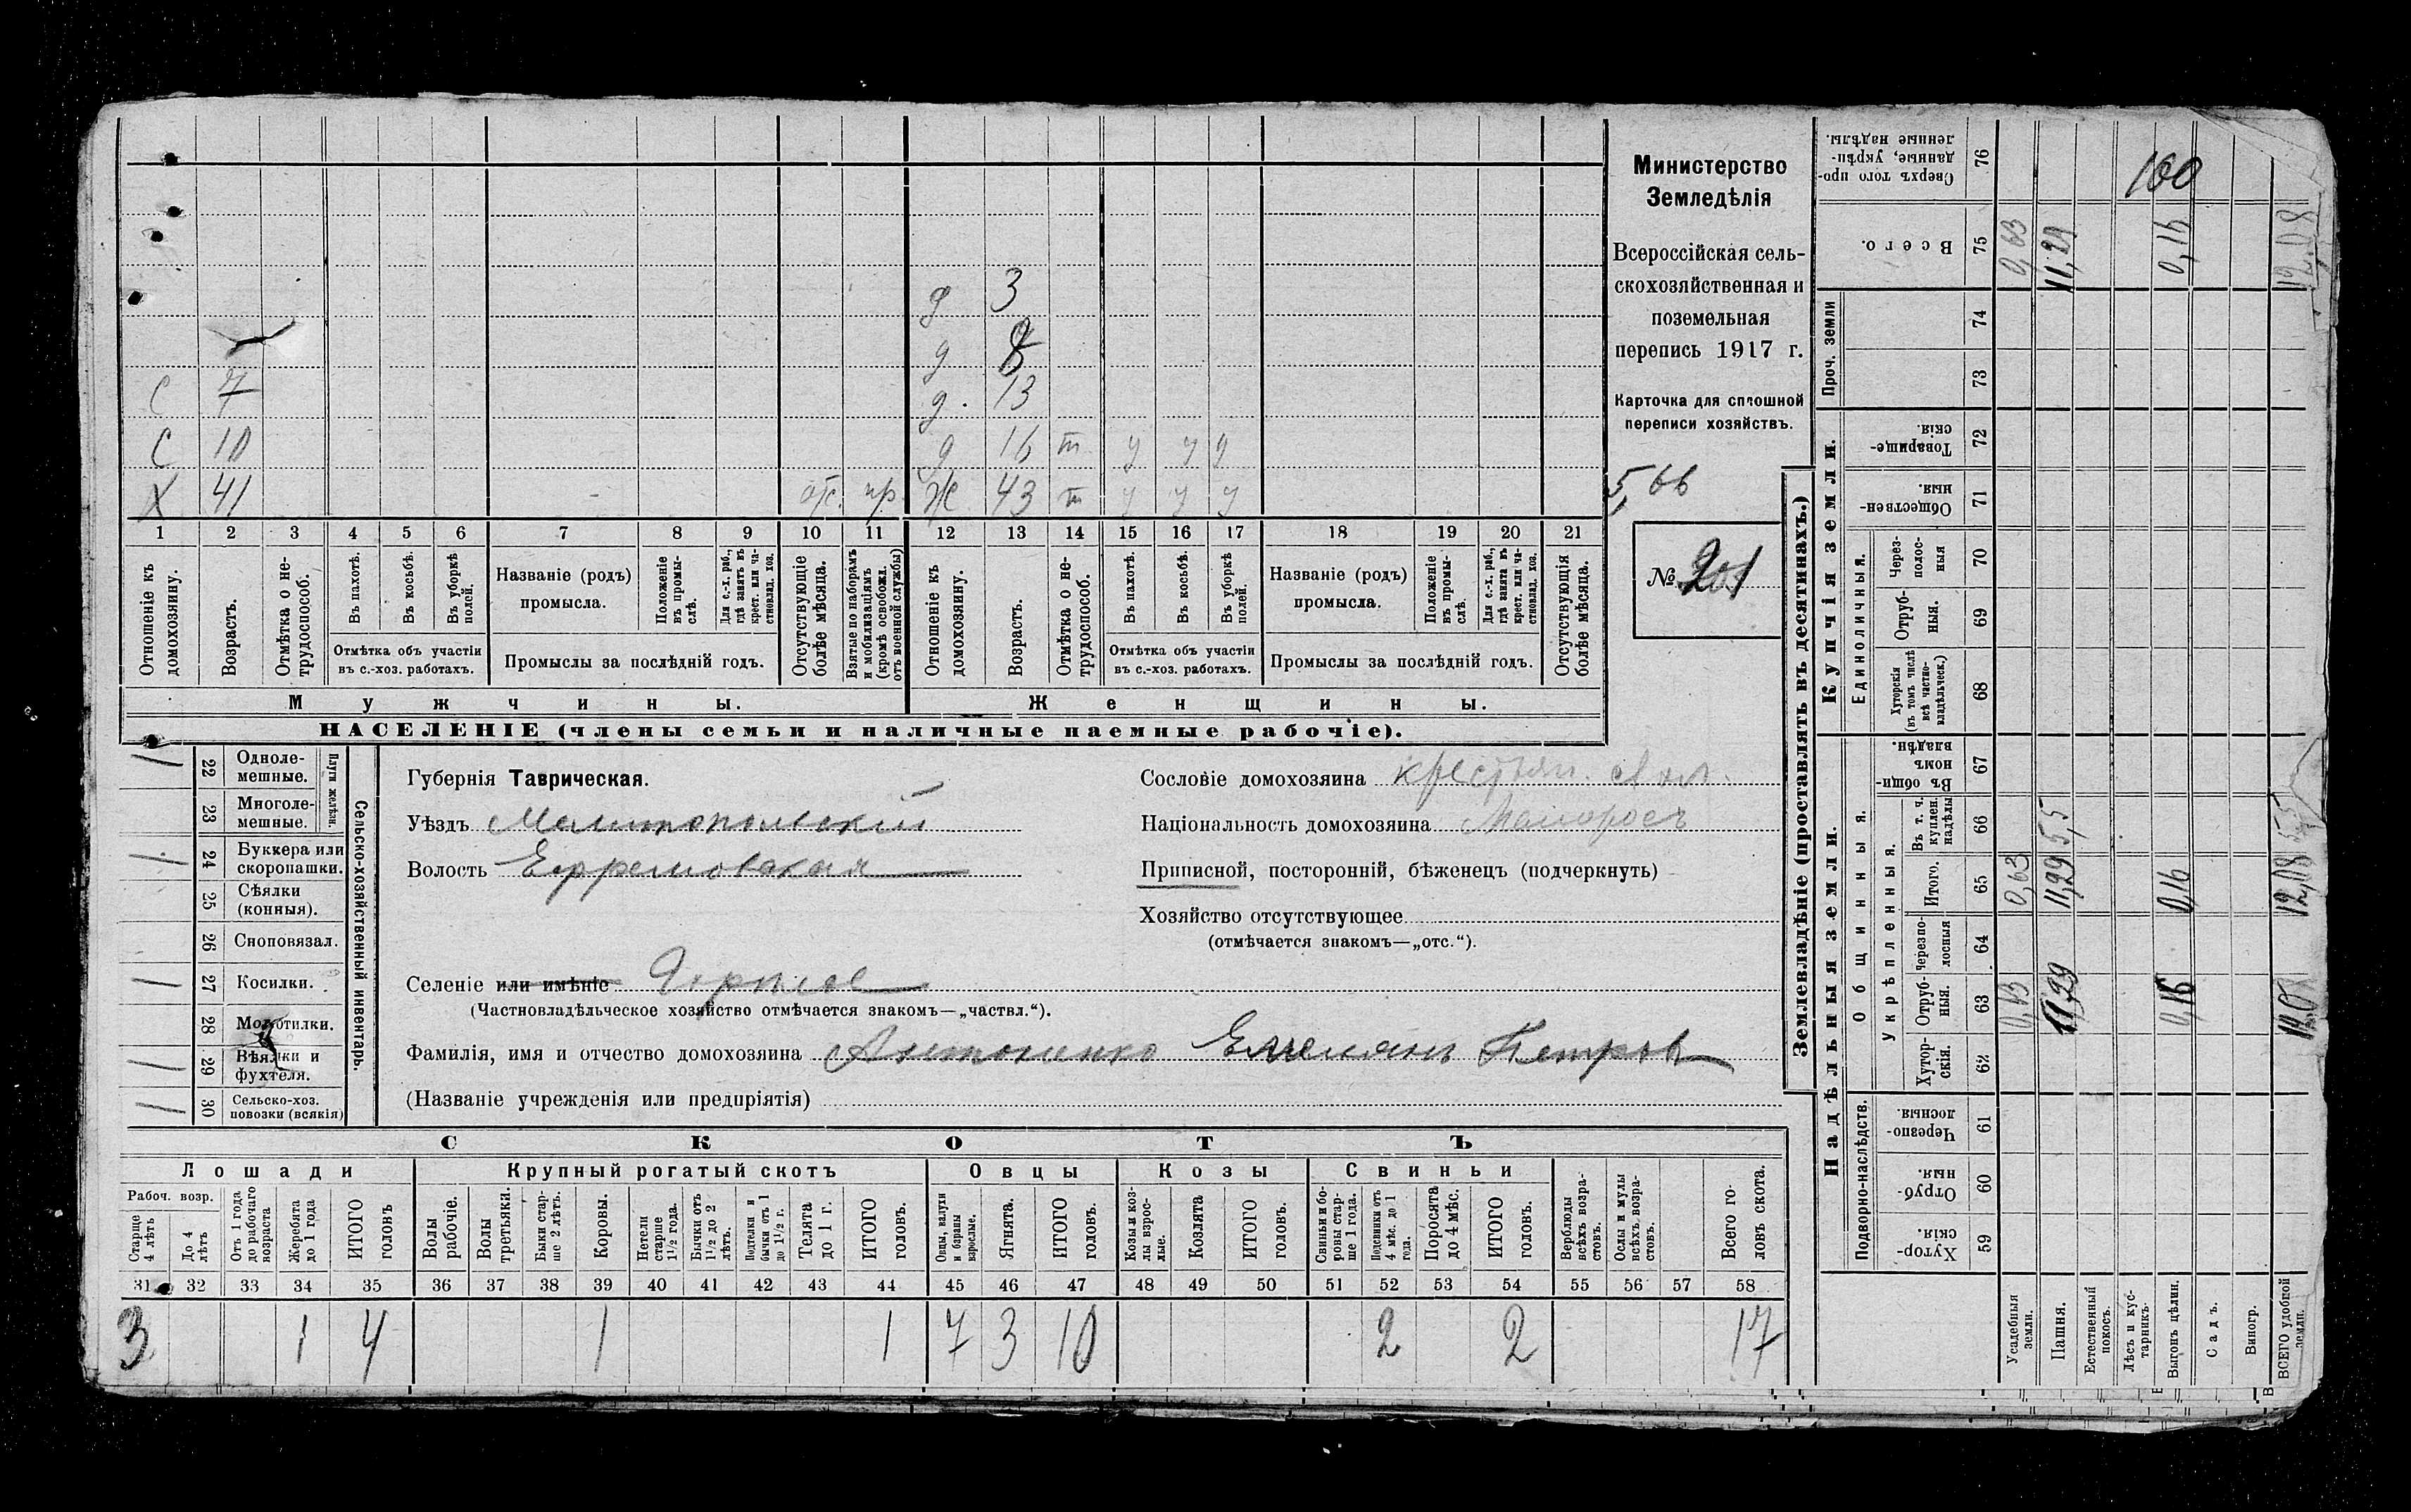 Министерство
Земледѣлія
Всероссійская сель-
скохозяйственная и
поземельная
перепись 1917 г.
Карточка для сплошной
переписи хозяйствъ.
5,66
№ 201
д 3
д
С 7 д. 13
С 10 д 16 т у у у
Х 41 отс. пр. Ж 43 т у у у
1 2 3 4 5 6 7 8 9 10 11 12 13 14 15 16 17 18 19 20 21
Отношеніе къ домохозяину.
Возрастъ.
Отмѣтка о не-трудоспособ.
Въ пахотѣ.
Въ косьбѣ.
Въ уборкѣ полей.
Отмѣтка объ участіи въ с.-хоз. работахъ.
Названіе (родъ) промысла.
Положеніе въ промы-слѣ.
Для с.-х. раб., гдѣ занятъ въ крест. или ча-стновлад. хоз.
Промыслы за послѣдній годъ.
Отсутствующіе болѣе мѣсяца.
Взятые по наборамъ и мобилизаціямъ (кромѣ освобожд. отъ военной службы)
Отношеніе къ домохозяину.
Возрастъ.
Отмѣтка о не-трудоспособ.
Въ пахотѣ.
Въ косьбѣ.
Въ уборкѣ полей.
Отмѣтка объ участіи въ с.-хоз. работахъ.
Названіе (родъ) промысла.
Положеніе въ промы-слѣ.
Для с.-х. раб., гдѣ занята въ крест. или ча-стновлад. хоз.
Промыслы за послѣдній годъ.
Отсутствующія болѣе мѣсяца.
Мужчины. Женщины.
НАСЕЛЕНІЕ (члены семьи и наличные наемные рабочіе).
Сельско-хозяйственный инвентарь.
Плуги желѣзн.
1 22 Одноле-мешные.
23 Многоле-мешные.
1 24 Буккера или скоропашки.
25 Сѣялки (конныя).
26 Сноповязал.
1 27 Косилки.
28 Молотилки.
1 29 Вѣялки и фухтеля.
1 30 Сельско-хоз. повозки (всякія)
Губернія Таврическая.
Уѣздъ Мелитопольскій
Волость Ефремовская
Селеніе или имѣніе Горълое
(Частновладѣльческое хозяйство отмѣчается знакомъ—„частвл.“).
Фамилія, имя и отчество домохозяина Антоненко Емельянъ Петров
(Названіе учрежденія или предпріятія)
Сословіе домохозяина крестьян.
Національность домохозяина Малоросъ
Приписной, посторонній, бѣженецъ (подчеркнуть)
Хозяйство отсутствующее
(отмѣчается знакомъ—„отс.“).
СКОТЪ
Лошади Крупный рогатый скотъ Овцы Козы Свиньи
Рабоч. возр.
Старше 4 лѣтъ
До 4 лѣтъ
Отъ 1 года до рабочаго возраста
Жеребята до 1 года
ИТОГО головъ
Волы рабочіе.
Волы третьяки.
Быки стар-ше 2 лѣтъ.
Коровы.
Нетели старше 1½ года.
Бычки отъ 1½ до 2 лѣтъ.
Подтелки и бычки отъ 1 до 1½ г.
Телята до 1 г.
ИТОГО головъ.
Овцы, валухи и бараны взрослые.
Ягнята.
ИТОГО головъ.
Козы и коз-лы взрос-лые.
Козлята
ИТОГО головъ.
Свиньи и бо-ровы стар-ше 1 года.
Подсвинки отъ 4 мѣс. до 1 года.
Поросята до 4 мѣс.
ИТОГО головъ.
Верблюды всѣхъ возра-стовъ.
Ослы и мулы всѣхъ возра-стовъ.
Всего го-ловъ скота.
31 32 33 34 35 36 37 38 39 40 41 42 43 44 45 46 47 48 49 50 51 52 53 54 55 56 57 58
3 1 4 1 1 7 3 10 2 2 17
Землевладѣніе (проставлять въ десятинахъ.)
Надѣльныя земли. Купчія земли. Проч. земли
Подворно-наслѣдств.
Общинныя.
Укрѣпленныя.
Единоличныя.
Хутор-скія. 59
Отруб-ныя. 60
Черезпо-лосныя. 61
Хутор-скія. 62
Отруб-ныя. 63
Черезпо-лосныя 64
Итого. 65
Въ т. ч. куплен. надѣлы 66
Въ общи-номъ владѣн. 67
Хуторскія (въ томъ числѣ всѣ частно-владѣльческ.) 68
Отруб-ныя. 69
Через-полос-ныя 70
Обществен-ныя. 71
Товарище-скія. 72
73
74
Всего. 75
Сверхъ того про-данные, укрѣп-ленные надѣлы. 76
Усадебныя земли. 0,63 0,63 0,63
Пашня. 11,29 11,29 5,5 11,29
Естественный покосъ.
Лѣсъ и кус-тарникъ.
Выгонъ цѣлин. 0,16 0,16 0,16
Садъ.
Виногр.
ВСЕГО удобной земли. 12,08 12,08 5,5 12,08
100